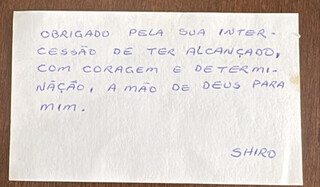 OBRIGADO PELA SUA INTER-
CESSÃO DE TER ALCANÇADO,
COM CORAGEM E DETERMI-
NAÇÃO, A MÃO DE DEUS PARA
MIM.
SHIRO